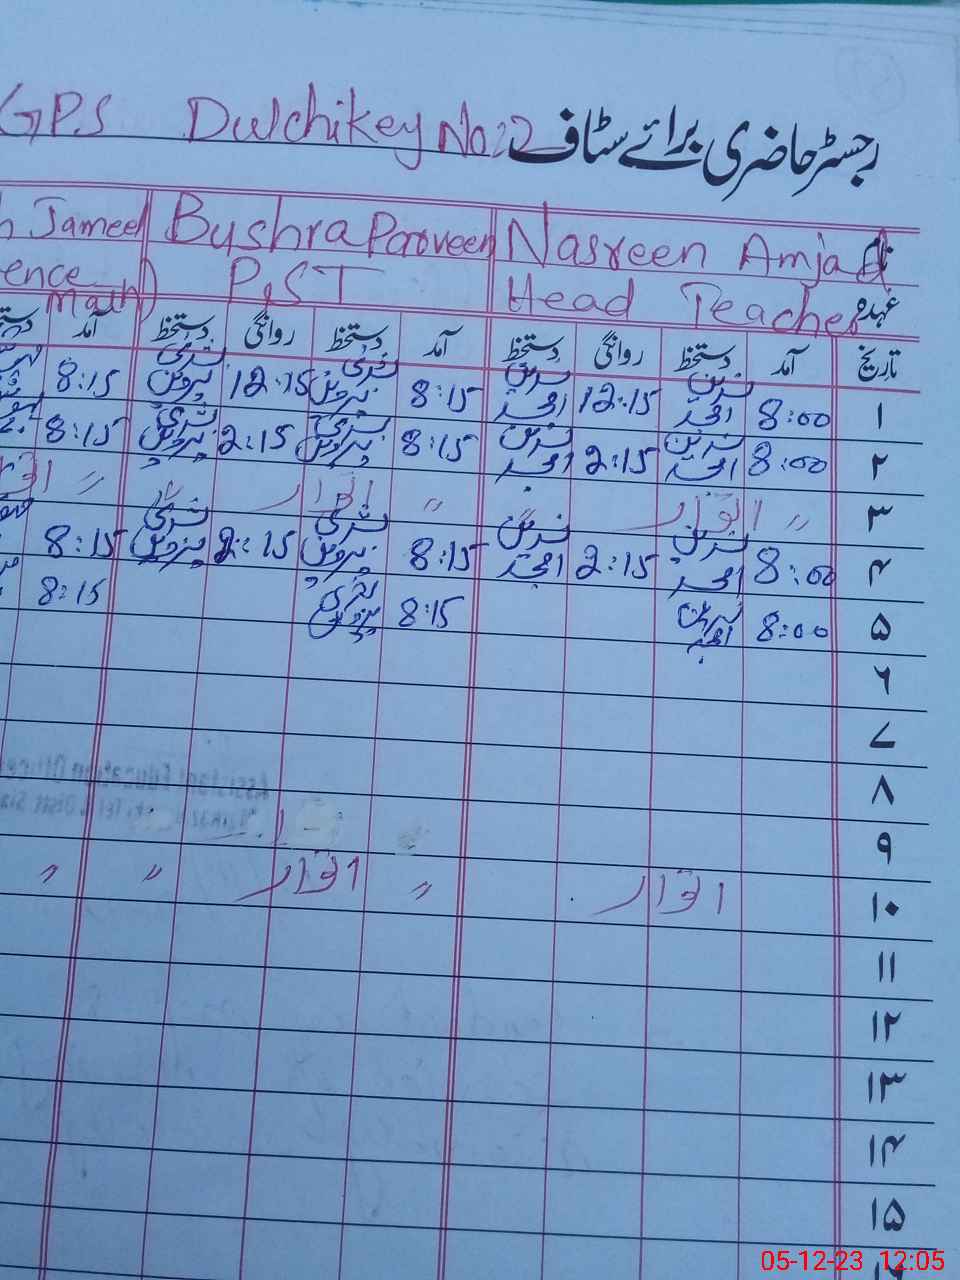 رجسٹر حاضری برائے سٹاف GPS Dulchikey No:2
نام Nasreen Amjad Bushra Parveen Jameel
عہدہ Head Teacher P.S.T ence Math)
تاریخ آمد دستخط روانگی دستخط آمد دستخط روانگی دستخط آمد
۱ 8:00 نسرین امجد 12:15 نسرین امجد 8:15 بشریٰ پروین 12:15 بشریٰ پروین 8:15
۲ 8:00 نسرین امجد 2:15 نسرین امجد 8:15 بشریٰ پروین 2:15 بشریٰ پروین 8:15
۳ " اتوار " اتوار "
۴ 8:00 نسرین امجد 2:15 نسرین امجد 8:15 بشریٰ پروین 2:15 بشریٰ پروین 8:15
۵ 8:00 نسرین امجد 8:15 بشریٰ پروین 8:15
۶
۷
۸
۹
۱۰ اتوار " اتوار " "
۱۱
۱۲
۱۳
۱۴
۱۵
05-12-23 12:05